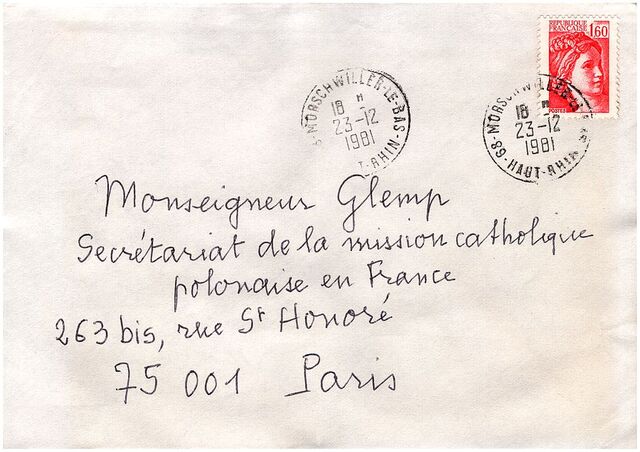 REPUBLIQUE
FRANÇAISE 1,60
MORSCHWILLER-LE-BAS
18 H
23-12
1981
T-RHIN
68-MORSCHWILLER-L
18 H
23-12
1981
HAUT-RHIN
Monseigneur Glemp
Secrétariat de la mission catholique
polonaise en France
263 bis, rue St Honoré
75 001 Paris